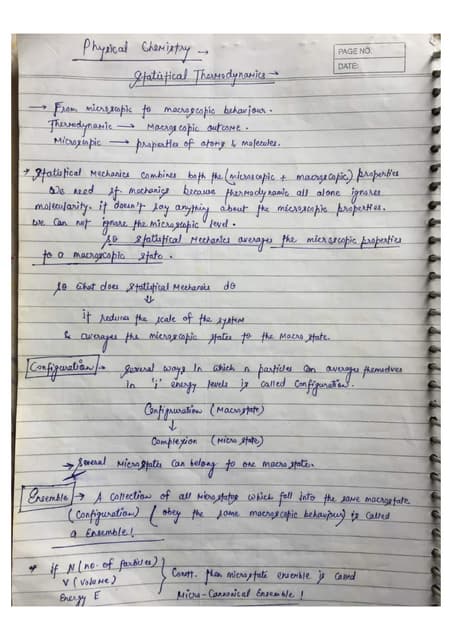 Physical Chemistry →
PAGE NO.
DATE:
Statistical Thermodynamics →
→ From microscopic to macroscopic behaviour.
Thermodynamic → Macroscopic outcome.
Microscopic → properties of atoms & molecules.
→ Statistical Mechanics combines both the (microscopic + macroscopic) properties
We need st mechanics because thermodynamic all alone ignores
molecularity. it doesn't say anything about the microscopic properties.
we can not ignore the microscopic level.
so statistical Mechanics averages the microscopic properties
to a macroscopic state.
so what does statistical Mechanics do
⇓
it reduces the scale of the system
& averages the microscopic states to the Macro state.
Configuration → Several ways in which n particles can averages themselves
in 'j' energy levels is called Configuration.
Configuration (Macrostate)
↓
Complexion (Micro state)
→ Several Microstates can belong to one macrostate.
Ensemble → A collection of all Microstates which fall into the same macrostate
(Configuration) (obey the same macroscopic behaviour) is called
a Ensemble!
* if N (no. of particles)
V (volume)
Energy E
} Constt. then microstate ensemble is called
Micro-Canonical Ensemble!